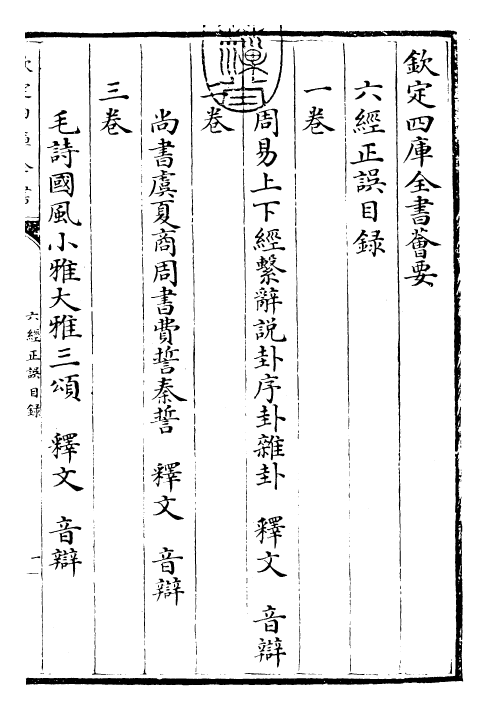 欽定四庫全書薈要
六經正誤目録
一卷
周易上下經繫辭說卦序卦雜卦 釋文 音辯
卷
尚書虞夏商周書費誓秦誓 釋文 音辯
三卷
毛詩國風小雅大雅三頌 釋文 音辯
六經正誤目録
一